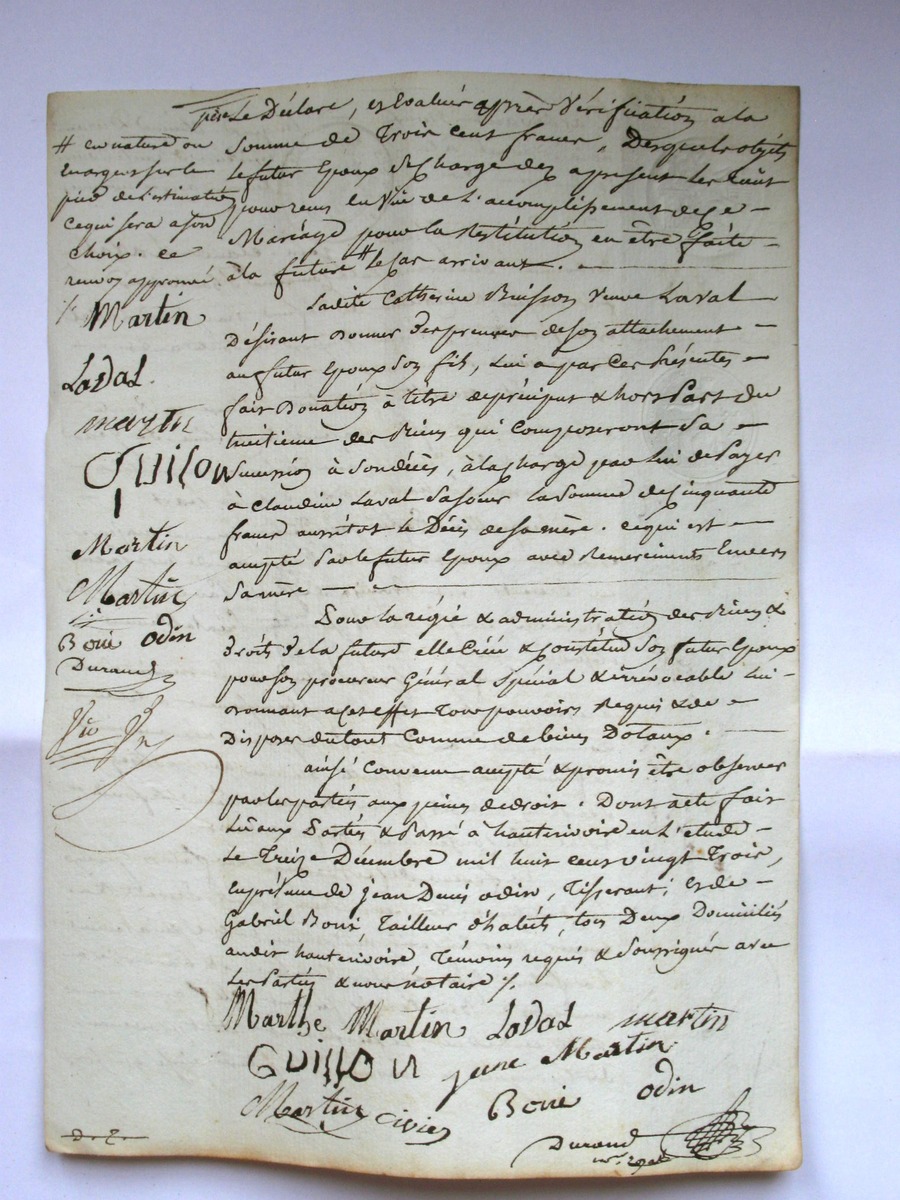 père Le Déclare, et Evalués après Vérification a la
Somme de Trois cent francs, Desquels objets
le futur Epoux Se Charge des a present Les aiant
pour reçus en Vüe de L'accomplissement de Ce
Mariage pour la Restitution en être faite
à la future # le Cas arrivant.
# en nature ou
en argent sur le
pied de L'estimation
Ce qui sera a Son
choix. Ce
renvoy approuvé
Martin
Laval
martin
Guillon
Martin
Martin
Boüé Odin
Durand
Ladite Catherine Buisson Veuve Laval
Désirant Donner Des preuves de Son attachement
au futur Epoux Son fils, Lui a par Ces Présentes
fait Donation à titre de préciput & hors Part du
huitième des Biens qui Composeront Sa
Sucession à Son décès, à la charge par Lui de Payer
à Claudine Laval Sa Soeur La Somme de Cinquante
francs aussitôt le Décès de Sa mère. Ce qui est
accepté Par le futur Epoux avec Remerciments Envers
Sa mère
Sous la régie & administration des Biens &
Droits De la future elle Crée & Constitue Son futur Epoux
pour Son procureur Général Spécial & irrévocable Lui
Donnant a Cet effet Tous pouvoirs Requis & de
Disposer du tout Comme de biens Dotaux.
ainsi Convenu accepté & promis être observer
par les parties aux peines de droit. Dont acte fait
Lu aux Parties & Passé à hauterivoire en L'etude
Le Treize Décembre mil huit cent vingt Trois,
En présence de Jean Denis odin, Tisserant, et de
Gabriel Boué, Tailleur d'habits, tous Deux Domiciliés
audit hauterivoire Témoins requis & Soussignés avec
Les Parties & nous Notaire ./.
Marthe Martin Laval martin
Guillon jane Martin
Martin Boüé odin
Durand